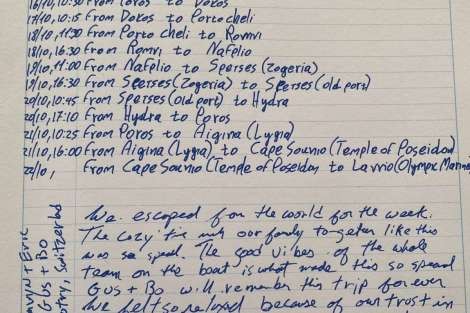 16/10, 10:30 From Poros to Dokos
17/10, 10:15 From Dokos to Portocheli
18/10, 11:30 From Porto cheli to Romvi
18/10, 16:30 From Romvi to Nafplio
19/10, 11:00 From Nafplio to Sperses (Zogeria)
19/10, 16:30 From Sperses (Zogeria) to Sperses (old port)
20/10, 10:45 From Sperses (old port) to Hydra
20/10, 17:10 From Hydra to Poros
21/10, 10:25 From Poros to Aigina (Lygia)
21/10, 16:00 From Aigina (Lygia) to Cape Sounio (Temple of Poseidon)
22/10, From Cape Sounio (Temple of Poseidon to Lavrio (Olympic Marina
We escaped from the world for the week.
The cozy time with our family together like this
was so special. The good vibes of the whole
team on the boat is what made this so special
Gus + Bo will remember this trip forever
We felt so relaxed because of our trust in
+ Eric
Gus + Bo
Switzerland